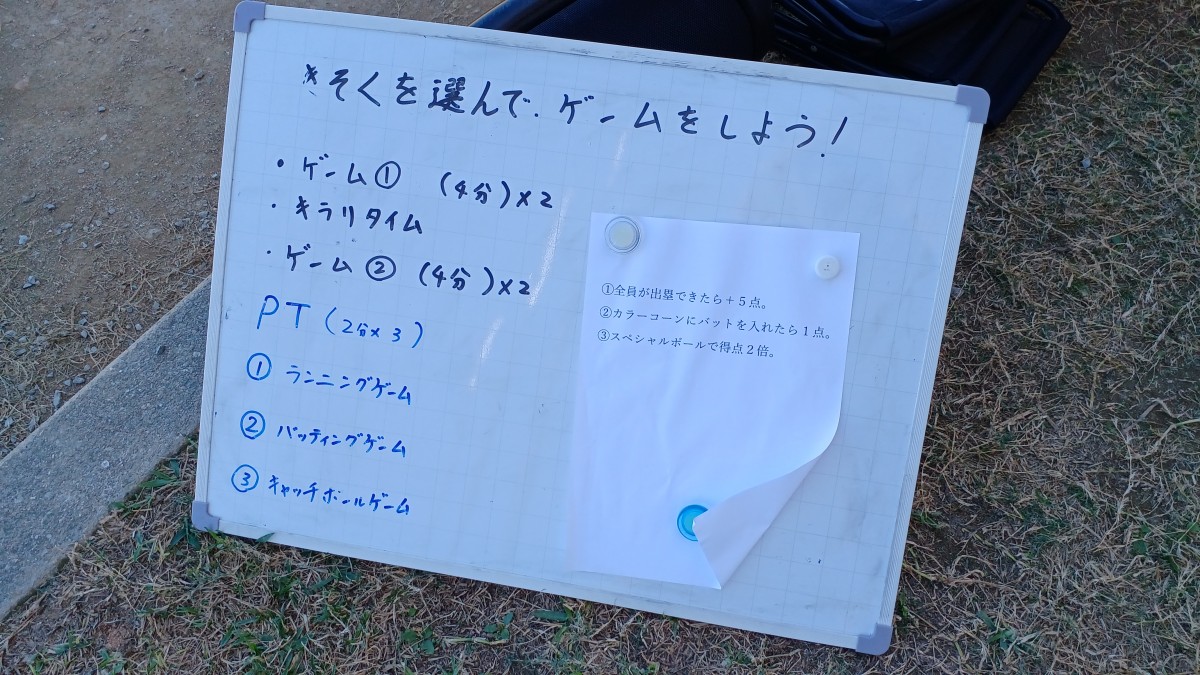 きそくを選んで、ゲームをしよう!
・ゲーム① (4分)×2
・キラリタイム
・ゲーム② (4分)×2
PT(2分×3)
① ランニングゲーム
② バッティングゲーム
③ キャッチボールゲーム
①全員が出塁できたら+5点。
②カラーコーンにバットを入れたら1点。
③スペシャルボールで得点2倍。